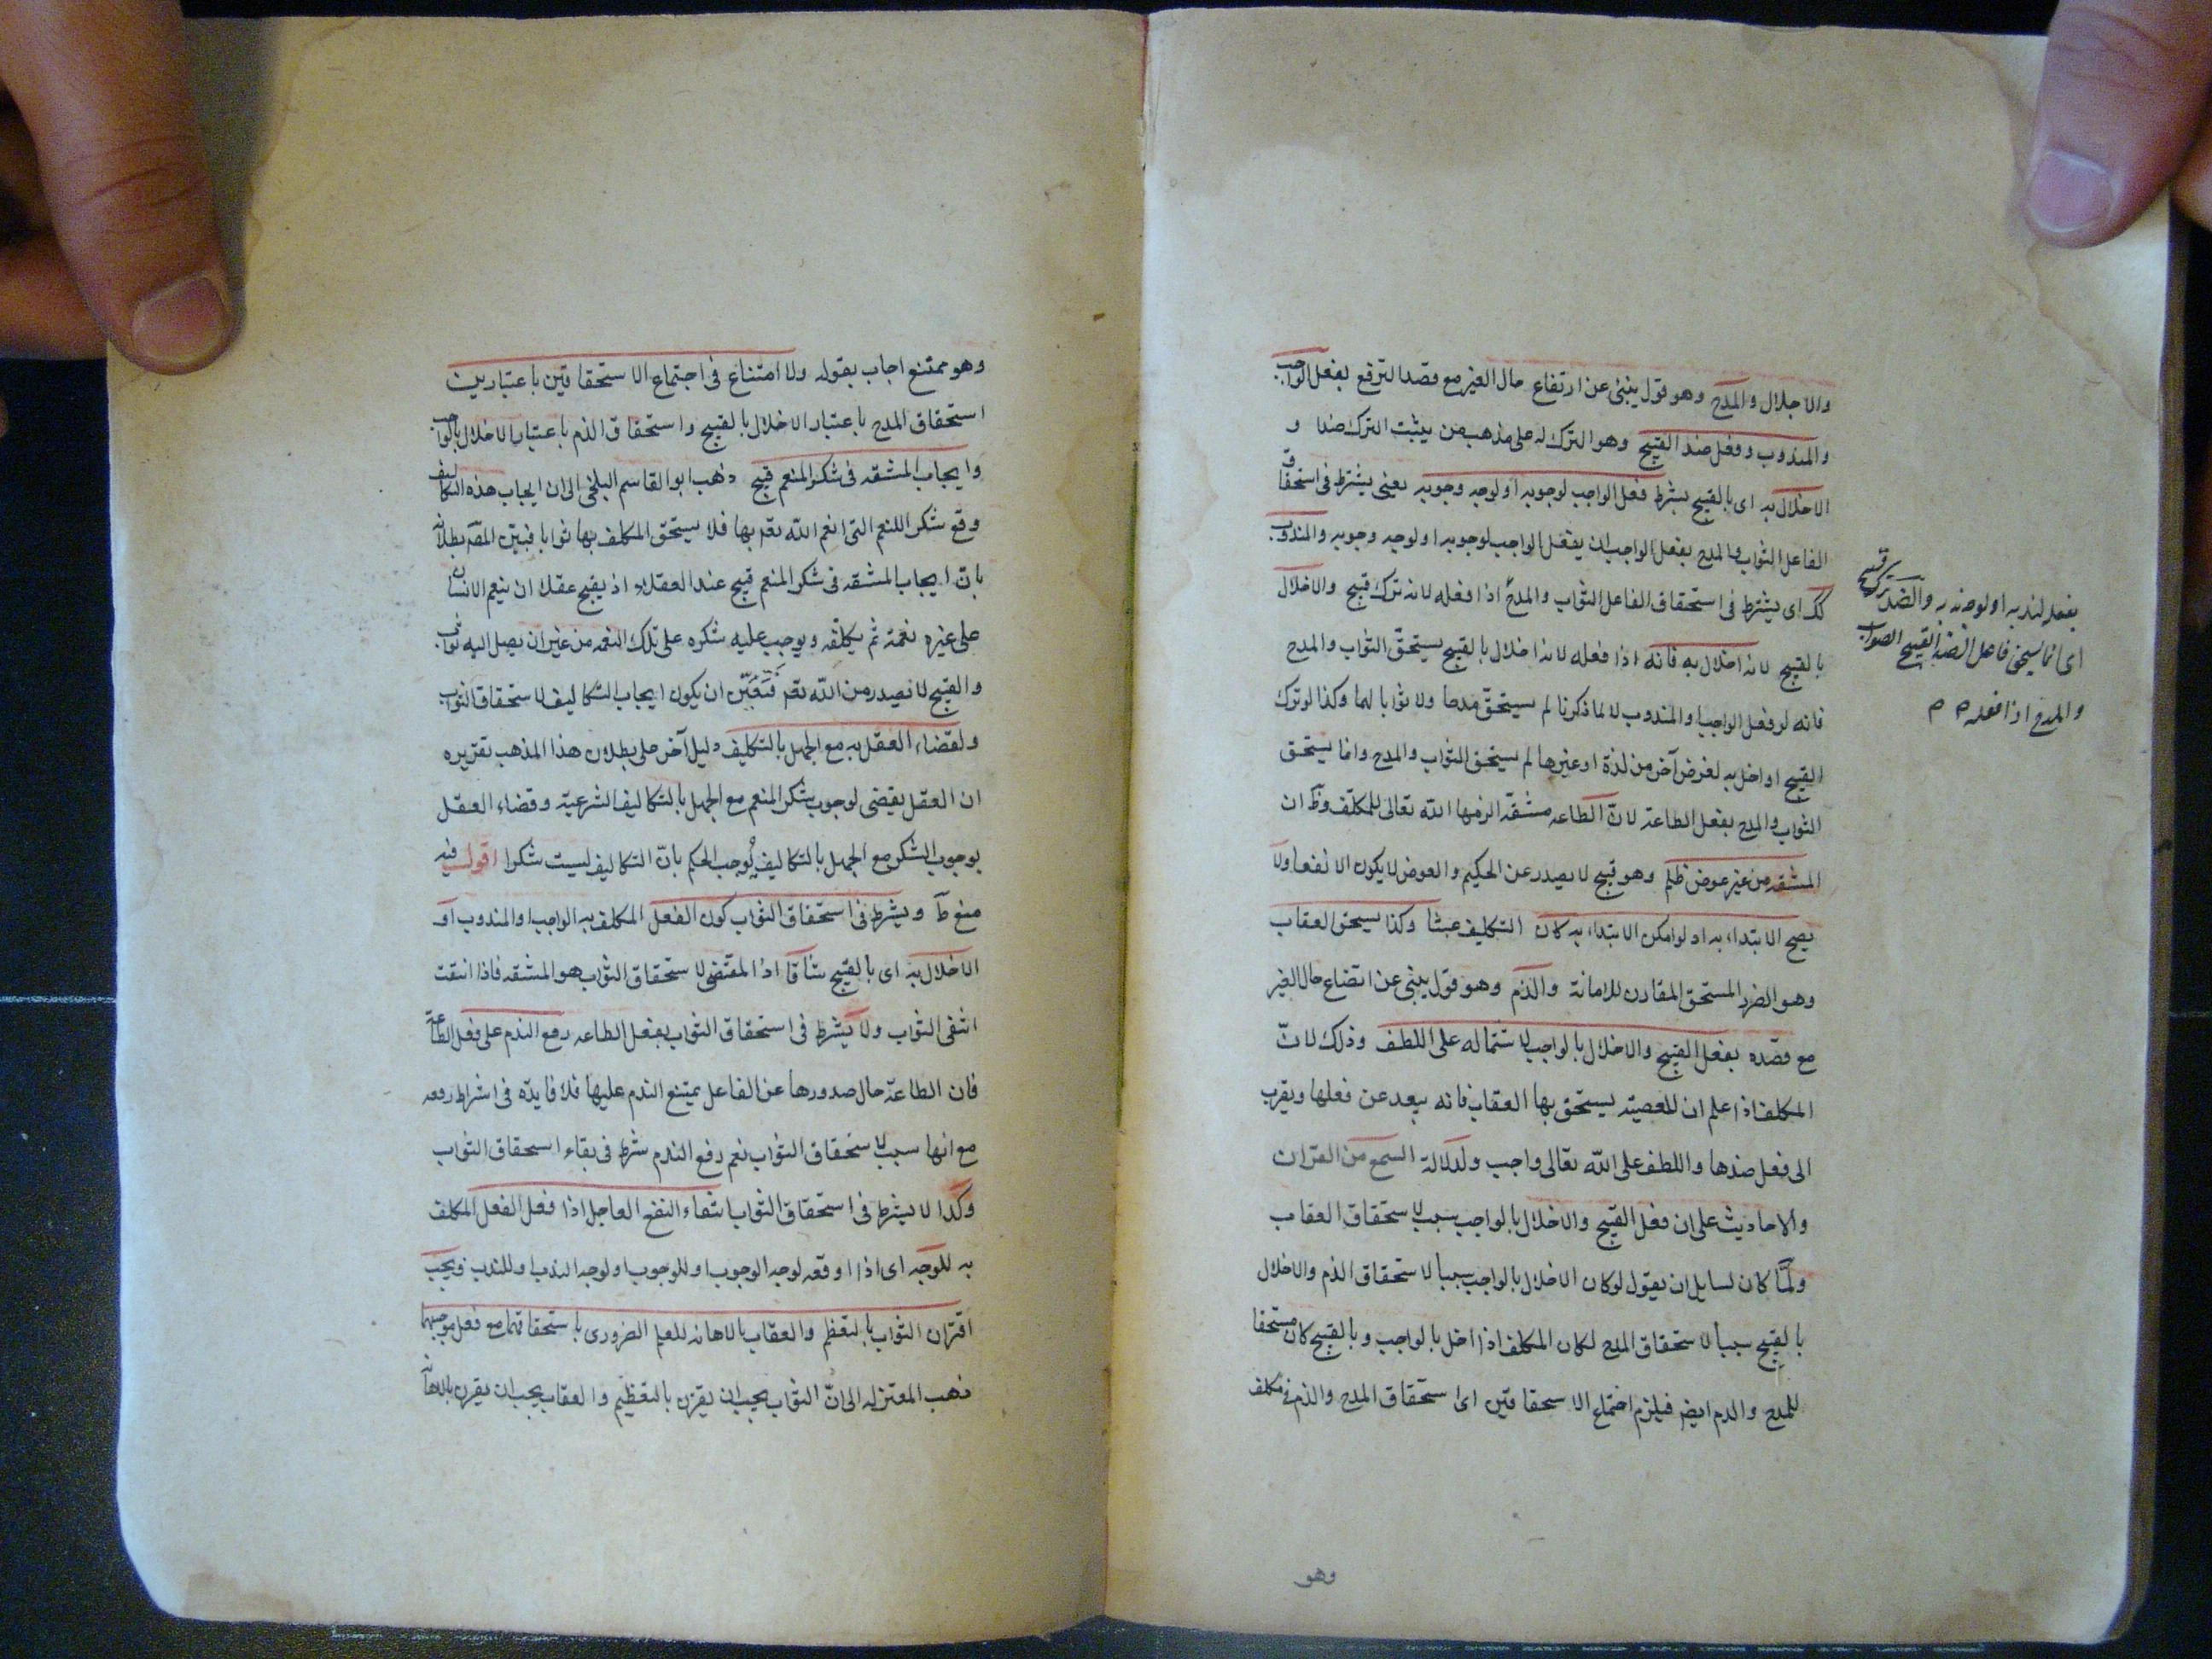 والاجلال والمدح وهو قول ينبئ عن ارتفاع حال الغير مع قصد الترفع بفعل الواجب
والمندوب وفعل ضد القبيح وهو الترك له على مذهب من يثبت الترك ضدا و
الاخلال به اى بالقبيح بشرط فعل الواجب لوجوبه او لوجه وجوبه يعنى يشترط فى استحقاق
الفاعل الثواب والمدح بفعل الواجب ان يفعل الواجب لوجوبه او لوجه وجوبه والمندوب
كك اى يشترط فى استحقاق الفاعل الثواب والمدح اذا فعله لانه ترك قبيح والاخلال
بالقبيح لانه اخلال به فانه اذا فعله لانه اخلال بالقبيح يستحق الثواب والمدح
فانه لو فعل الواجب والمندوب لا لما ذكرنا لم يستحق مدحا ولا ثوابا لهما وكذا لو ترك
القبيح او اخل به لغرض آخر من لذة او غيرها لم يستحق الثواب والمدح وانما يستحق
الثواب والمدح بفعل الطاعة لان الطاعه مشقة الزمها الله تعالى للمكلف وظ ان
المشقه من غير عوض ظلم وهو قبيح لا يصدر عن الحكيم والعوض لا يكون الا نفعا ولا
يصح الابتداء به اذ لو امكن الابتداء به كان التكليف عبثا وكذا يستحق العقاب
وهو الضرر المستحق المقارن للاهانة والذم وهو قول ينبئ عن اتضاع حال الغير
مع قصده بفعل القبيح والاخلال بالواجب لاشتماله على اللطف وذلك لان
المكلف اذا علم ان المعصية يستحق بها العقاب فانه يبعد عن فعلها ويقرب
الى فعل ضدها واللطف على الله تعالى واجب ولدلالة السمع من القران
والاحاديث على ان فعل القبيح والاخلال بالواجب سبب لاستحقاق العقاب
ولما كان لسايل ان يقول لو كان الاخلال بالواجب سببا لاستحقاق الذم والاخلال
بالقبيح سببا لاستحقاق المدح لكان المكلف اذا اخل بالواجب وبالقبيح كان مستحقا
للمدح والذم ايضا فيلزم اجتماع الاستحقاقين اى استحقاق المدح والذم فى مكلف
وهو
بفعله لندبه او لوجه ندبه والضد لانه ترك قبيح
اى انما يستحق فاعل الضد القبيح الثواب
والمدح اذا فعله
وهو ممتنع اجاب بقوله ولا امتناع فى اجتماع الاستحقاقين باعتبارين
استحقاق المدح باعتبار الاخلال بالقبيح واستحقاق الذم باعتبار الاخلال بالواجب
وايجاب المشقه فى شكر المنعم قبيح ذهب ابو القاسم البلخى الى ان ايجاب هذه التكاليف
وقع شكر النعم التى انعم الله تعه بها فلا يستحق المكلف بها ثوابا فبين المصه بطلانه
بان ايجاب المشقه فى شكر المنعم قبيح عند العقلاء اذ يقبح عقلا ان ينعم الانسان
على غيره نعمة ثم يكلفه ويوجب عليه شكره على تلك النعمه من غير ان يصل اليه ثواب
والقبيح لا يصدر من الله تعه فتعين ان يكون ايجاب التكاليف لاستحقاق الثواب
ولقضاء العقل به مع الجهل بالتكليف دليل آخر على بطلان هذا المذهب تقريره
ان العقل يقضى لوجوب شكر المنعم مع الجهل بالتكاليف الشرعية وقضاء العقل
بوجوب الشكر مع الجهل بالتكاليف يوجب الحكم بان التكاليف ليست شكرا اقول فيه
منع ظ ويشترط فى استحقاق الثواب كون الفعل المكلف به الواجب والمندوب او
الاخلال به اى بالقبيح شاقا اذ المقتضى لاستحقاق الثواب هو المشقه فاذا انتفت
انتفى الثواب ولا يشترط فى استحقاق الثواب بفعل الطاعه رفع الندم على فعل الطاعة
فان الطاعة حال صدورها عن الفاعل يمتنع الندم عليها فلا فايدة فى اشتراط رفعه
مع انها سبب لاستحقاق الثواب نعم رفع الندم شرط فى بقاء استحقاق الثواب
وكذا لا يشترط فى استحقاق الثواب انتفاء النفع العاجل اذا فعل الفعل المكلف
به للوجه اى اذا اوقعه لوجه الوجوب او للوجوب او لوجه الندب او للندب ويجب
اقتران الثواب بالتعظم والعقاب بالاهانه للعلم الضرورى باستحقاقهما مع فعل موجبهما
ذهب المعتزله الى ان الثواب يجب ان يقترن بالتعظيم والعقاب يجب ان يقترن بالاهانة